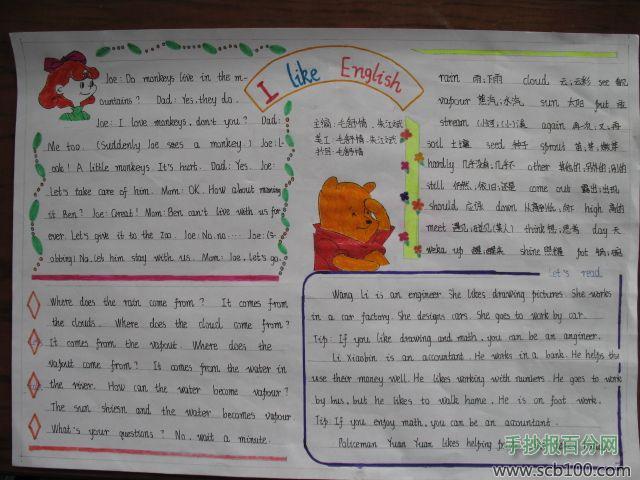 I like English
Joe: Do monkeys live in the m-
ountains? Dad: Yes, they do.
Joe: I love monkeys, don't you? Dad:
Me too. (Suddenly Joe sees a monkey.) Joe: L-
ook! A little monkeys It's hurt. Dad: Yes. Joe:
Let's take care of him. Mom: OK. How about
it Ben? Joe: Great! Mom: Ben can't live with us for
ever. Let's give it to the zoo. Joe: No, no.... Joe: (S-
obbing) No, let him stay with us. Mom: Joe, let's go.
主编: 毛舒情、朱江斌
美工: 毛舒情、朱江斌
书写: 毛舒情
rain 雨;下雨 cloud 云;云彩 see
vapour 蒸汽;水汽 sun 太阳 put
stream (小)河;(小)溪 again 再一次;又;再
soil 土壤 seed 种子 sprout 苗;芽;嫩芽
hardly 几乎没有;几乎不 other 其他的;另外的;别的
still 仍然;依旧;还是 come out 露出;出现
should 应该 down 高的
meet 遇见;碰见(某人) think 想;思考 day 天
weka up 醒;醒来 shine 照耀 pot 锅;
Let's read
Where does the rain come from? It comes from
the clouds. Where does the cloud come from?
It comes from the vapout. Where does the
vapout come from? It comes from the water in
the river. How can the water become vapour?
The sun shiesn and the water becomes vapour
What's your questions? No, wait a minute.
Wang Li is an engineer. She likes drawing pictures. She works
in a car factory. She designs cars. She goes to work by car.
Tip: If you like drawing and math, you can be an angineer.
Li Xiaobin is an accountant. He works in a bank. He helps the
use their money well. He likes working with numbers. He goes to work
by bus, but he likes to walk home. He is on foot work.
Tip: If you enjoy math, you can be an accountant.
Policeman Yuan Yuan likes helping
手抄报百分网
www.scb100.com